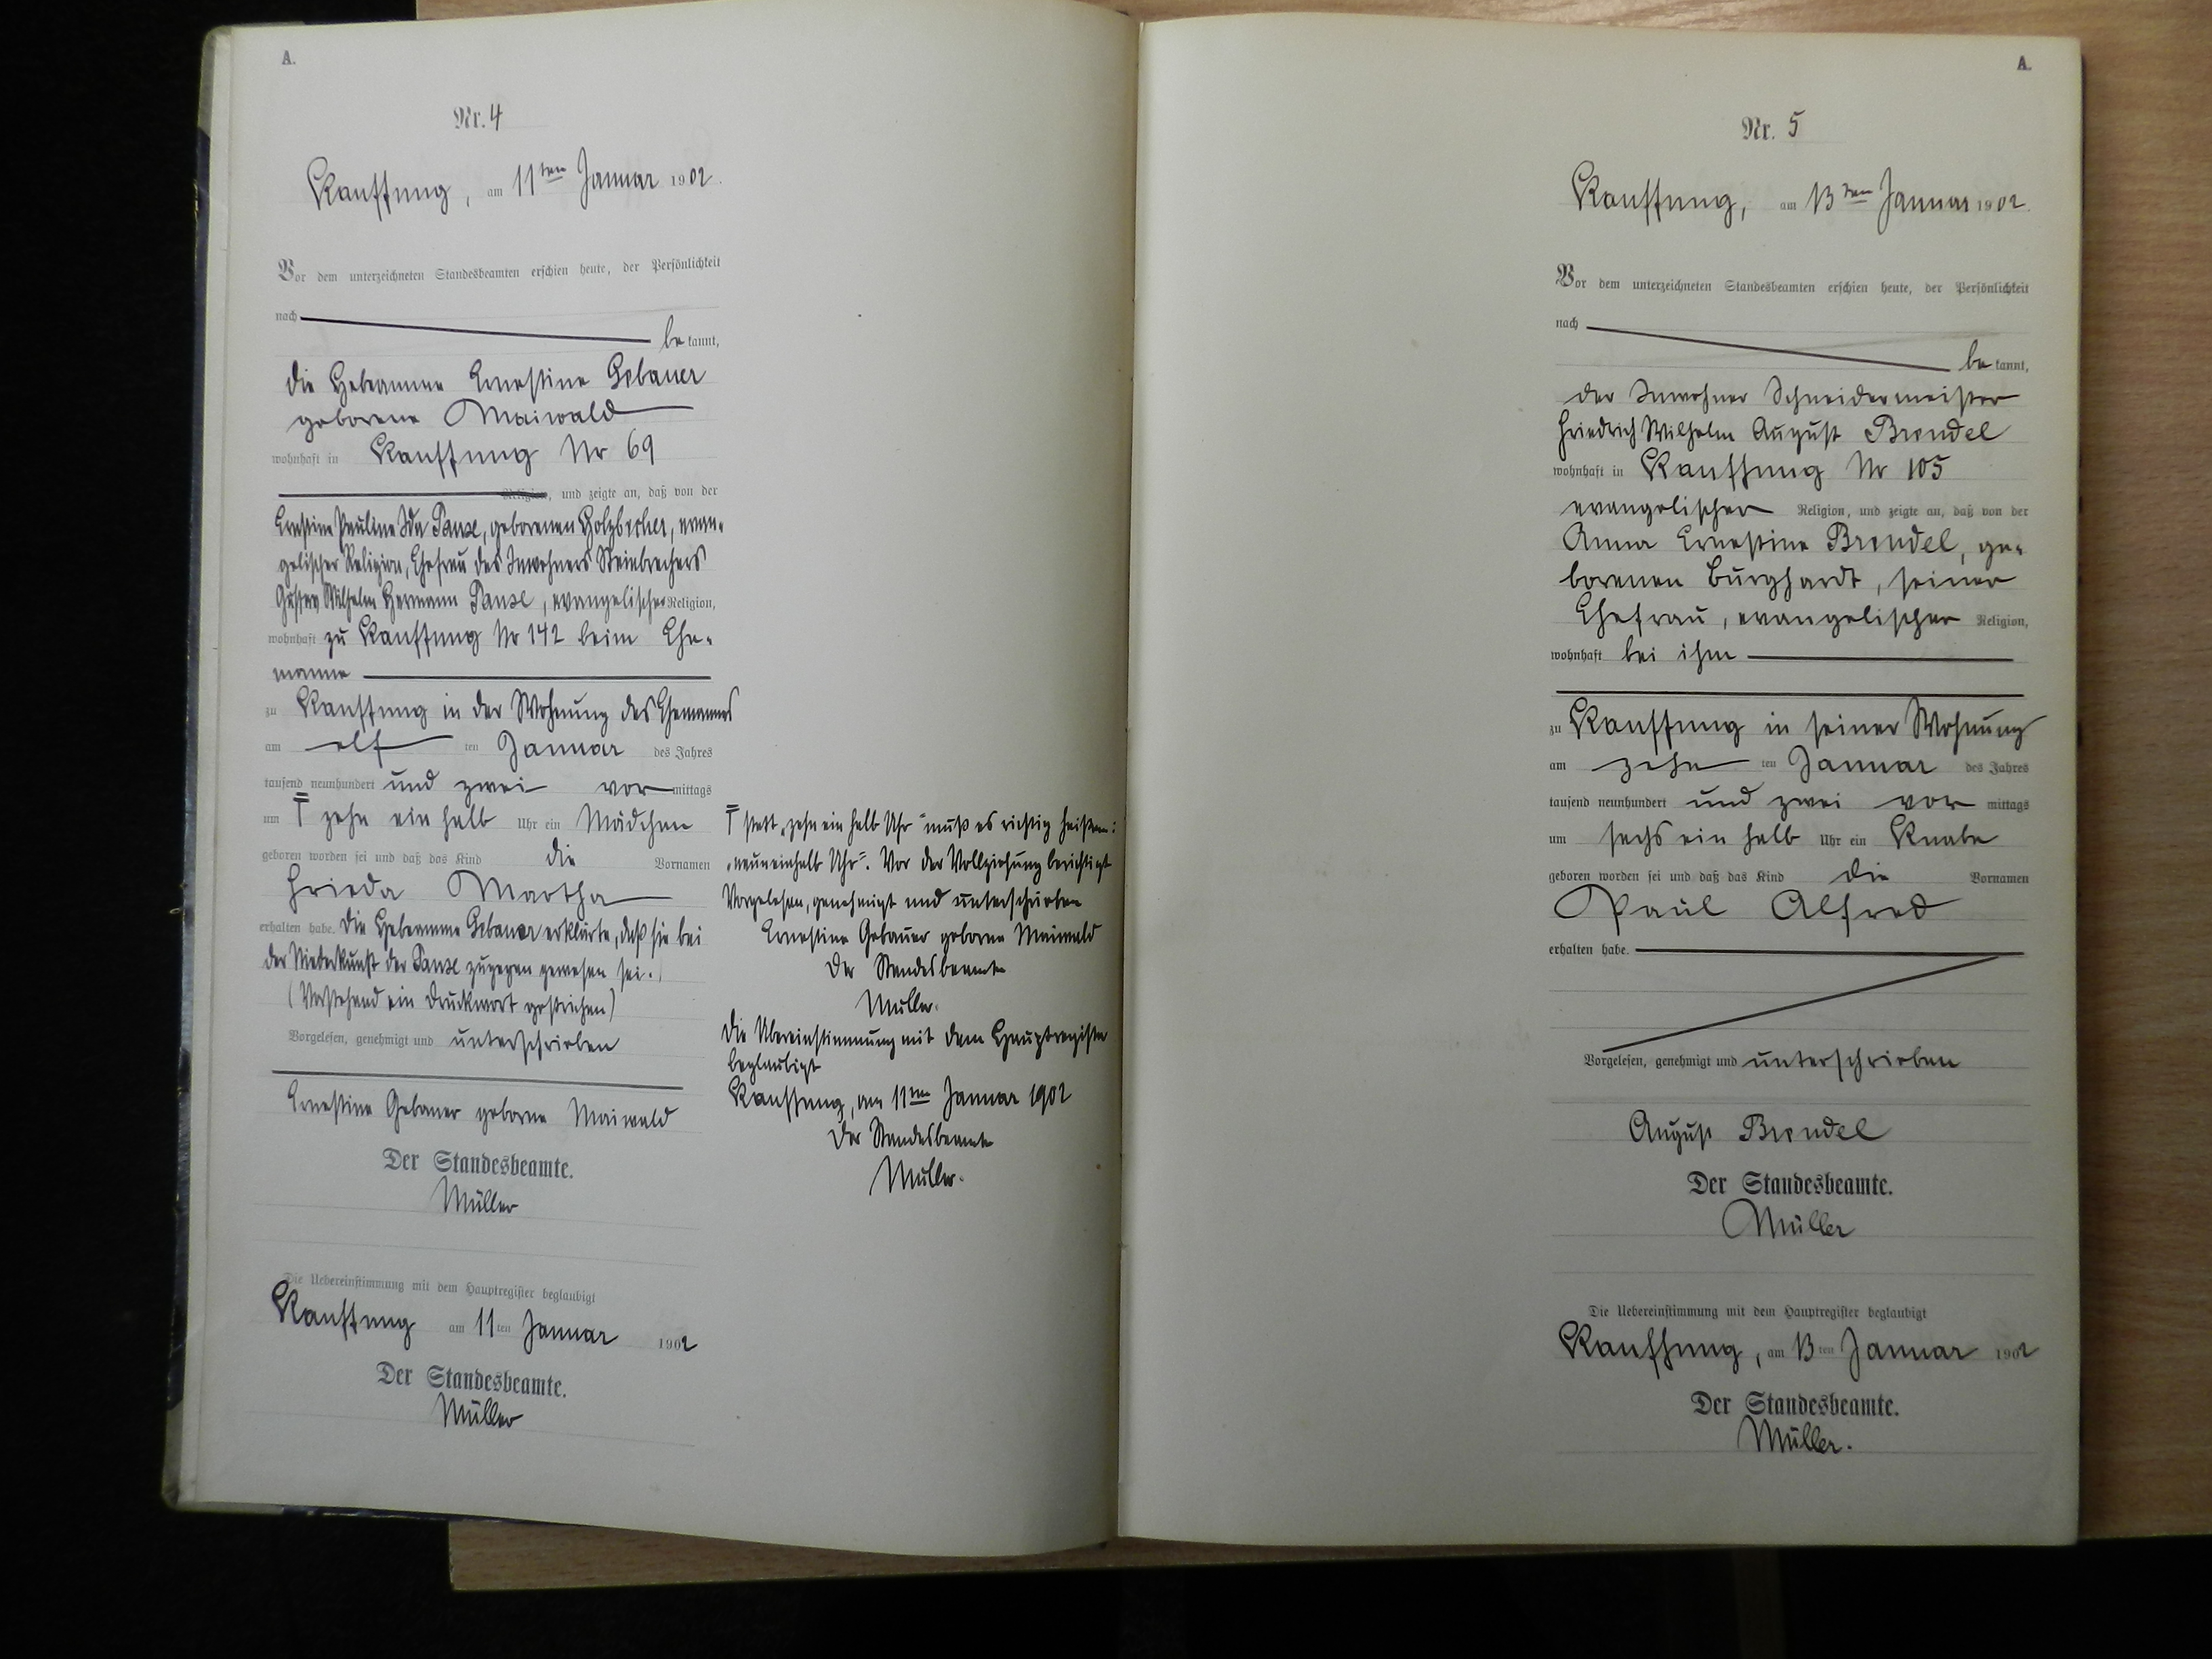 A.
Nr. 4
Kauffung, am 11ten Januar 1902.
Vor dem unterzeichneten Standesbeamten erschien heute, der Persönlichkeit
nach
be kannt,
die Hebeamme Ernestine Gebauer
geborene Maiwald
wohnhaft in Kauffung Nr 69
Religion, und zeigte an, daß von der
Ernestine Pauline Ida Pause, geborenen Holzbecher, evan-
gelischer Religion, Ehefrau des Inwohners Steinbrechers
Gustav Wilhelm Hermann Pause, evangelischer Religion,
wohnhaft zu Kauffung Nr 142 beim Ehe-
manne
zu Kauffung in der Wohnung des Ehemannes
am elf ten Januar des Jahres
tausend neunhundert und zwei vor mittags
um zehn ein halb Uhr ein Mädchen
geboren worden sei und daß das Kind die Vornamen
Frieda Martha
erhalten habe. Die Hebeamme Gebauer erklärte, daß sie bei
der Niederkunft der Pause zugegen gewesen sei.
(Vorstehend ein Druckwort gestrichen)
Vorgelesen, genehmigt und unterschrieben
Ernestine Gebauer geborne Maiwald
Der Standesbeamte.
Müller
Die Uebereinstimmung mit dem Hauptregister beglaubigt
Kauffung am 11ten Januar 1902
Der Standesbeamte.
Müller
statt „zehn ein halb Uhr" muß es richtig heißen:
„neun einhalb Uhr". Vor der Vollziehung berichtigt
Vorgelesen, genehmigt und unterschrieben
Ernestine Gebauer geborne Maiwald
Der Standesbeamte
Müller.
Die Übereinstimmung mit dem Hauptregister
beglaubigt
Kauffung, am 11ten Januar 1902
Der Standesbeamte
Müller.
A.
Nr. 5
Kauffung, am 13ten Januar 1902.
Vor dem unterzeichneten Standesbeamten erschien heute, der Persönlichkeit
nach
be kannt,
der Inwohner Schneidermeister
Friedrich Wilhelm August Brendel
wohnhaft in Kauffung Nr 105
evangelischer Religion, und zeigte an, daß von der
Anna Ernestine Brendel, ge-
borenen Burghardt, seiner
Ehefrau, evangelischer Religion,
wohnhaft bei ihm
zu Kauffung in seiner Wohnung
am zehn ten Januar des Jahres
tausend neunhundert und zwei vor mittags
um sechs ein halb Uhr ein Knabe
geboren worden sei und daß das Kind die Vornamen
Paul Alfred
erhalten habe.
Vorgelesen, genehmigt und unterschrieben
August Brendel
Der Standesbeamte.
Müller
Die Uebereinstimmung mit dem Hauptregister beglaubigt
Kauffung, am 13ten Januar 1902
Der Standesbeamte.
Müller.